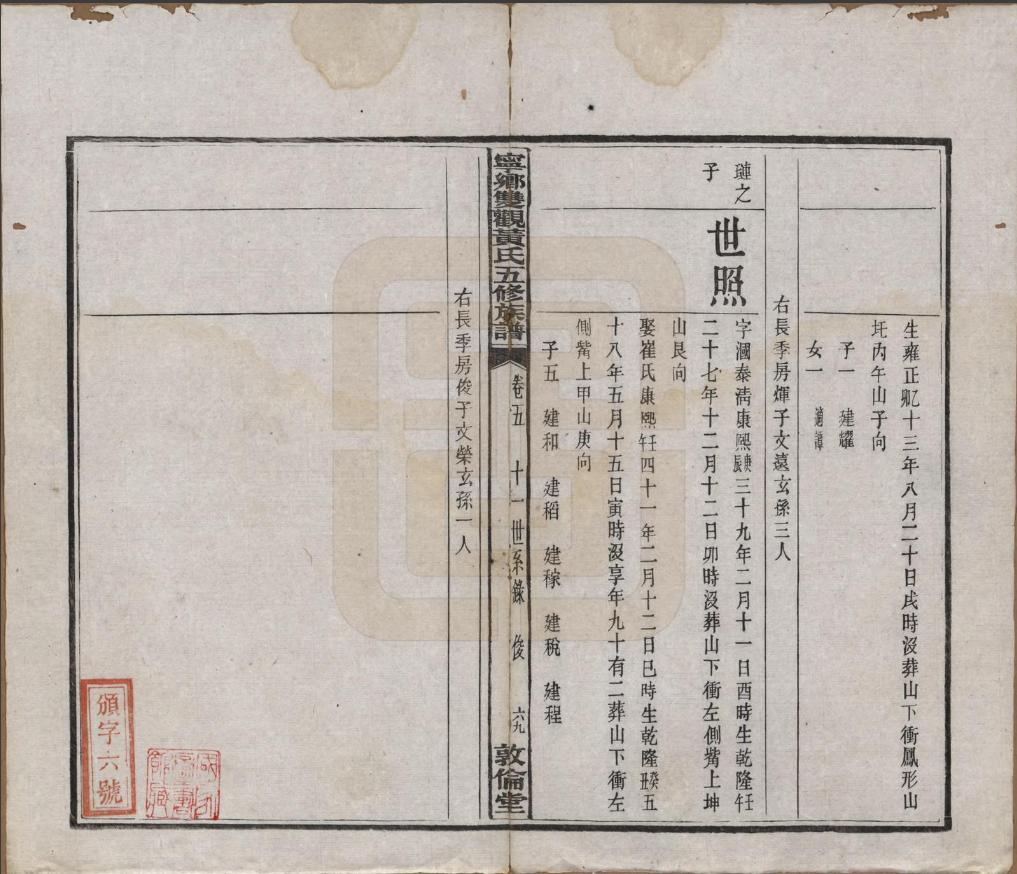 生雍正乙卯十三年八月二十日戌時沒葬山下衝鳳形山
圫丙午山子向
子一　建耀
女一　適譚
右長季房煇子文遠玄孫三人
璉之子
世照
字溷泰清康熙庚辰三十九年二月十一日酉時生乾隆壬午
二十七年十二月十二日卯時沒葬山下衝左側嘴上坤
山艮向
娶崔氏康熙壬午四十一年二月十二日巳時生乾隆癸丑五
十八年五月十五日寅時沒享年九十有二葬山下衝左
側嘴上甲山庚向
子五　建和　建稻　建稼　建稅　建程
寧鄉雙觀黃氏五修族譜
卷五　十一世系錄　俊　六九
敦倫堂
右長季房俊子文榮玄孫一人
頒字六號